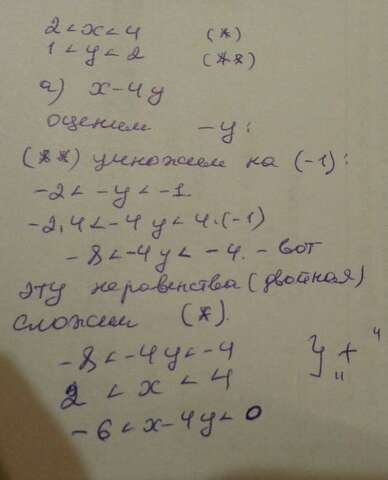 2 < x < 4 (*)
1 < y < 2 (**)
а) x-4y
оценим -y:
(**) умножим на (-1):
-2 < -y < -1.
-2,4 < -4y < 4.(-1)
-8 < -4y < -4. - вот
эту неравенства (двойная)
сложим (*).
-8 < -4y < -4
2 < x < 4 } "+"
-6 < x-4y < 0